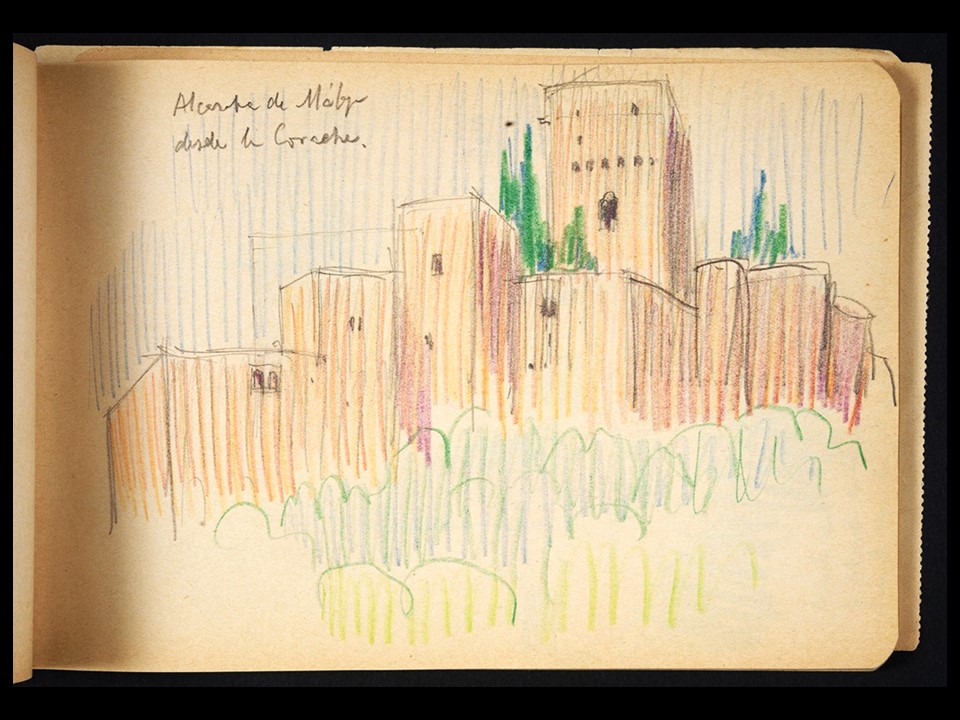 Alcazaba de Málaga
desde la Coracha.